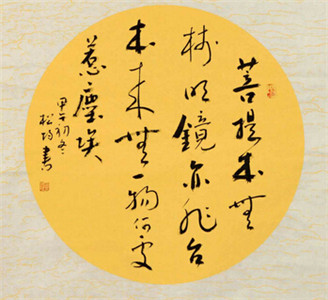 菩提本無
樹明鏡亦非台
本来無一物何處
惹塵埃
甲午初冬
松書